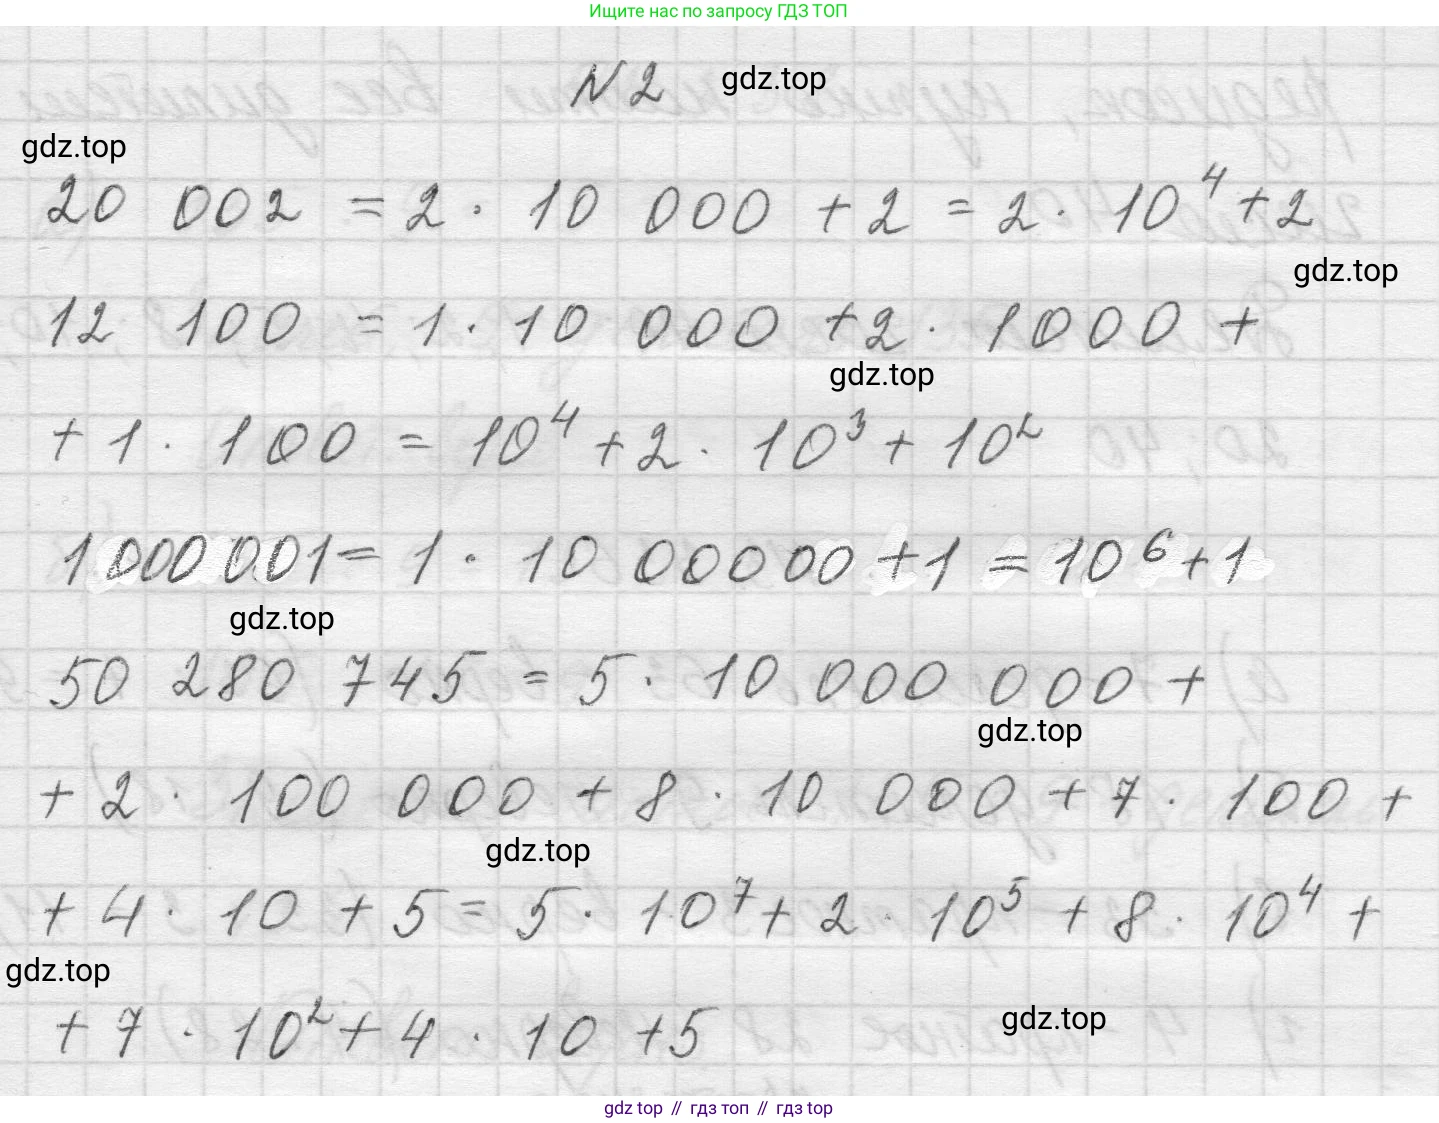 Ищите нас по запросу ГДЗ ТОП
N 2 gdz.top
gdz.top
20 002 = 2 · 10 000 + 2 = 2 · 10⁴ + 2
gdz.top
12 100 = 1 · 10 000 + 2 · 1000 +
gdz.top
+ 1 · 100 = 10⁴ + 2 · 10³ + 10²
1000 001 = 1 · 10 00000 + 1 = 10⁶ + 1
gdz.top
50 280 745 = 5 · 10 000 000 +
gdz.top
+ 2 · 100 000 + 8 · 10 000 + 7 · 100 +
gdz.top
+ 4 · 10 + 5 = 5 · 10⁷ + 2 · 10⁵ + 8 · 10⁴ +
gdz.top
+ 7 · 10² + 4 · 10 + 5
gdz.top
gdz top // гдз топ // гдз top